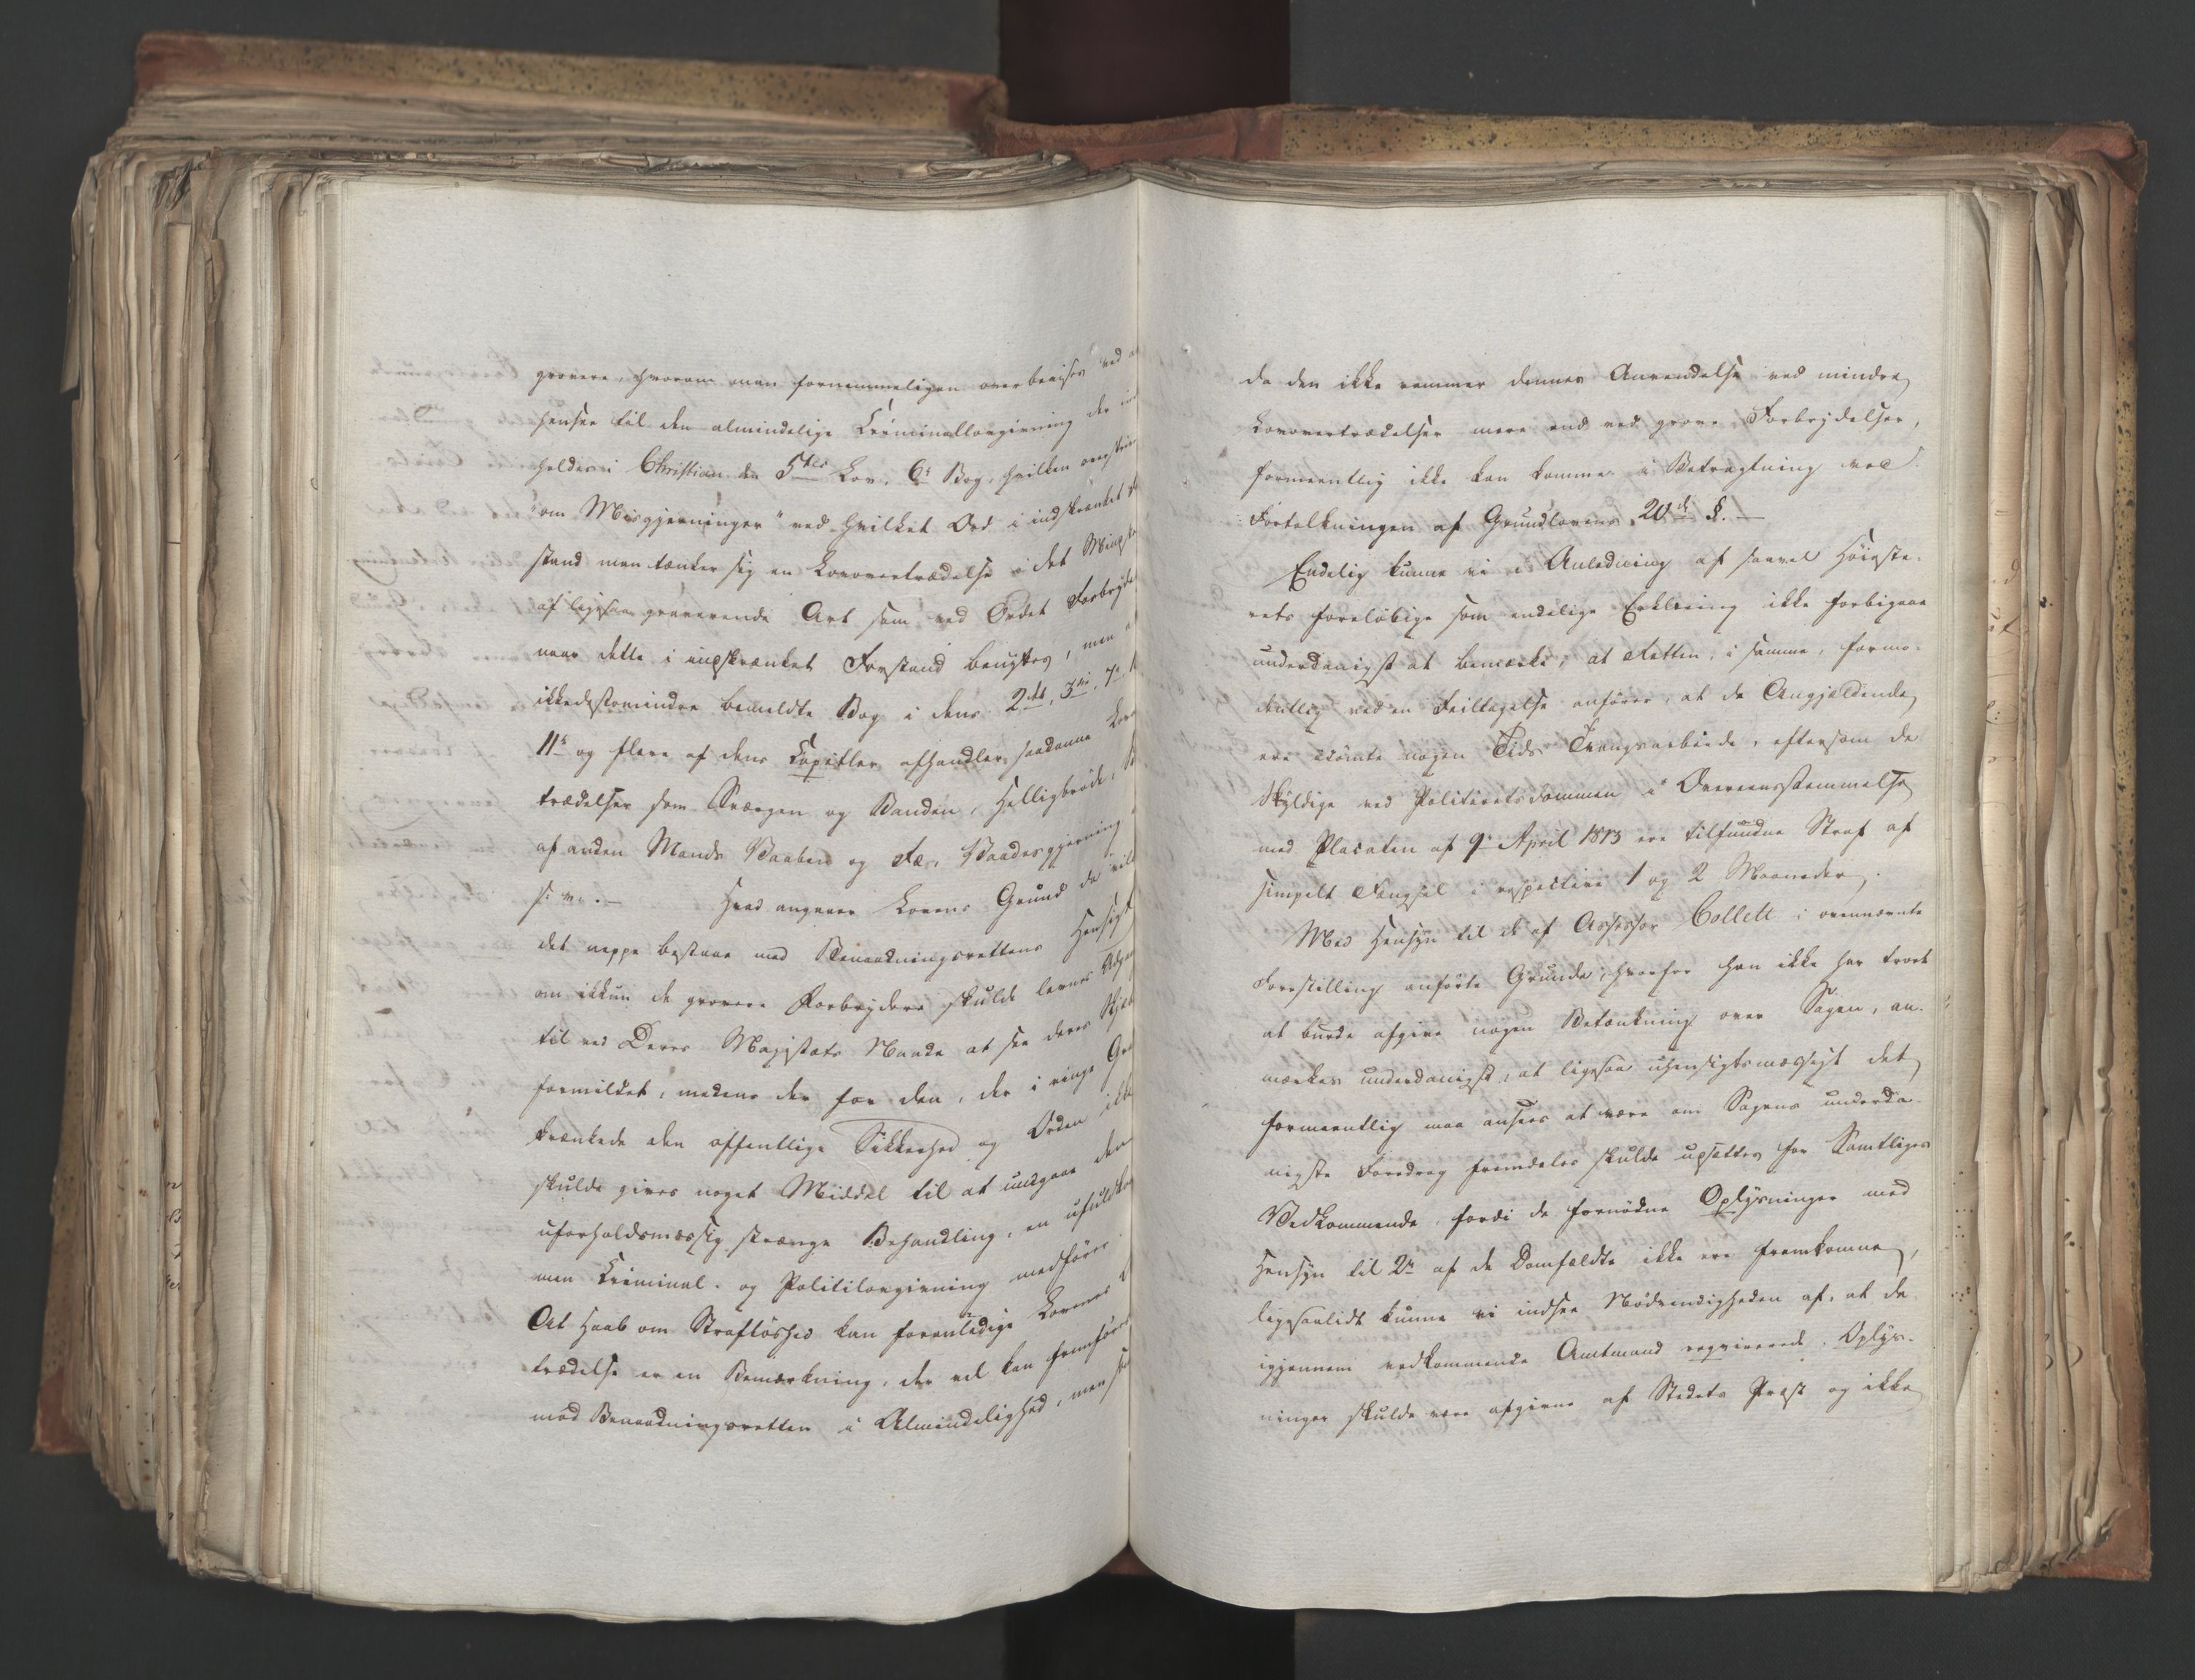 grovere, hvorom man fornemmeligen overbevises ved
hensee til den almindelige Criminallovgivning der
holdes i Christian den 5tes Lov, 6te Bog, hvilken
"om Misgjerninger" ved hvilket Ord i indskrænket
stand man tænker sig en Lovovertrædelse i det
af ligesaa graverende Art som ved Ordet
naar dette i indskrænket Forstand benyttes, men
ikkedestomindre bemeldte Bog i dens 2det, 3die, 7de,
11te og flere af dens Capitler afhandler saadanne
trædelser som Sværgen og Banden, Helligbrøde,
af anden Mands Vaaben og Fæ, Vaadesgjerning
s: v: .— Hvad angaaer Lovens Grund da vil
det neppe bestaae med Benaadningsrettens Hensigt
om ikkun de grovere Forbrydere skulde levnes
til ved Deres Majestæts Naade at see deres
formildet, medens der for den, der i ringe
krænkede den offentlige Sikkerhed og Orden ikke
skulde gives noget Middel til at undgaae den
uforholdsmæssig strænge Behandling, en
men Criminal- og Politilovgivning medfører
At Haab om Strafløshed kan foranledige Lovenes
trædelse er en Bemærkning, der vel kan
mod Benaadningsretten i Almindelighed, men
da den ikke rammer dennes Anvendelse ved mindre
Lovovertrædelser mere end ved grove Forbrydelser,
formeentlig ikke kan komme i Betragtning ved
Fortolkningen af Grundlovens 20de §.—
Endelig kunne vi i Anledning af saavel Høieste-
rets foreløbige som endelige Erklæring ikke forbigaae
underdanigst at bemærke, at Retten, i samme, formo-
dentlig ved en Feiltagelse anfører, at de Angjældende
ere dømte nogen Tids Tvangsarbeide, eftersom de
Skyldige ved Politieretsdommen i Overeensstemmelse
med Placaten af 9de April 1813 ere tilfundne Straf af
simpelt Fængsel i respective 1 og 2 Maaneder.
Med Hensyn til de af Assessor Collett i ovennævnte
Forestilling anførte Grunde, hvorfor han ikke har troet
at burde afgive nogen Betænkning over Sagen, an-
mærkes underdanigst, at ligesaa uhensigtsmæssigt det
formeentlig maa ansees at være om Sagens underda-
nigste Foredrag fremdeles skulde opsættes for Samtliges
Vedkommende, fordi de fornødne Oplysninger med
Hensyn til 2de af de Domfældte ikke ere fremkomne,
ligesaalidt kunne vi indsee Nødvendigheden af, at de
igjennem vedkommende Amtmand reqvirerede Oplys-
ninger skulde være afgivne af Stedets Præst og ikke